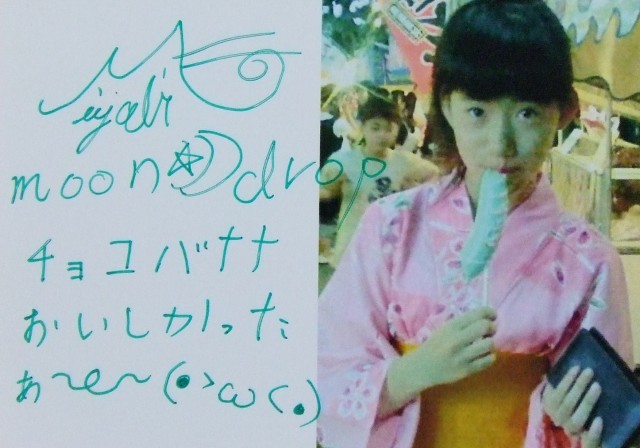 Miyabi
moon☆drop
チョコバナナ
おいしかった
ぁ〜e〜(•>ω<•)